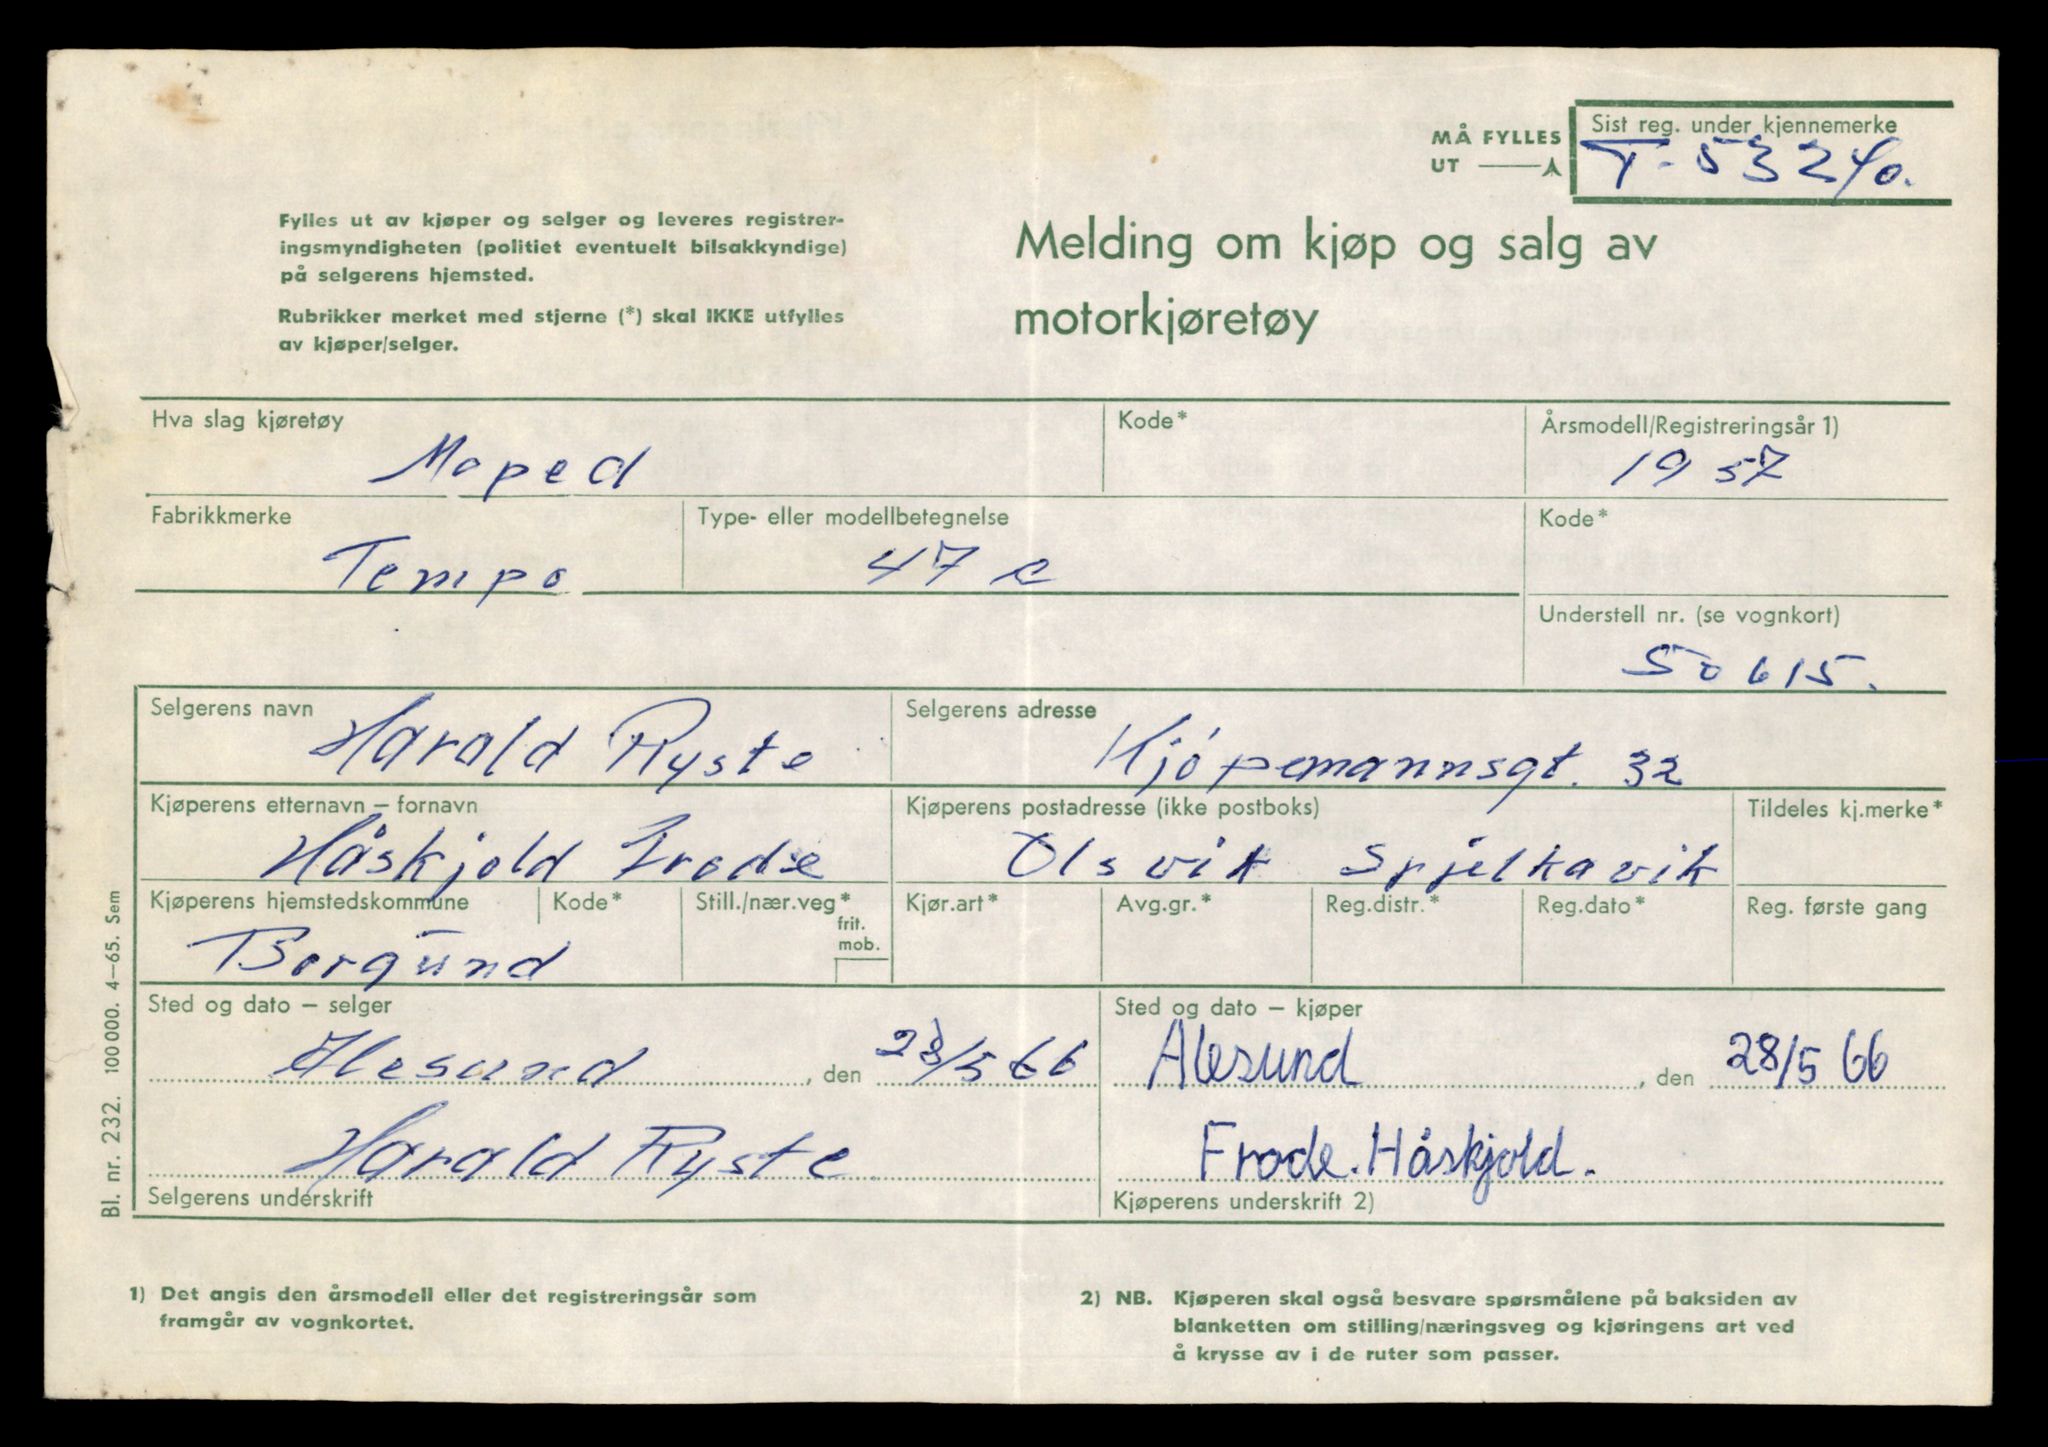 MÅ FYLLES
UT
Sist reg. under kjennemerke
T-53240.
Fylles ut av kjøper og selger og leveres registrer-
ingsmyndigheten (politiet eventuelt bilsakkyndige)
på selgerens hjemsted.
Rubrikker merket med stjerne (*) skal IKKE utfylles
av kjøper/selger.
Melding om kjøp og salg av
motorkjøretøy
Hva slag kjøretøy Kode* Årsmodell/Registreringsår 1)
Moped 1957
Fabrikkmerke Type- eller modellbetegnelse Kode*
Tempo 47 c
Understell nr. (se vognkort)
50615.
Selgerens navn Selgerens adresse
Harald Ryste Kjøpemannsgt. 32
Kjøperens etternavn – fornavn Kjøperens postadresse (ikke postboks) Tildeles kj.merke*
Håskjold Frode Olsvik Spjelkavik
Kjøperens hjemstedskommune Kode* Still./nær.veg* Kjør.art* Avg.gr.* Reg.distr.* Reg.dato* Reg. første gang
frit.
mob.
Borgund
Sted og dato – selger Sted og dato – kjøper
Alesund , den 28/5 66 Alesund , den 28/5 66
Harald Ryste Frode. Håskjold.
Selgerens underskrift Kjøperens underskrift 2)
Bl. nr. 232. 100 000. 4–65. Sem
1) Det angis den årsmodell eller det registreringsår som
framgår av vognkortet.
2) NB. Kjøperen skal også besvare spørsmålene på baksiden av
blanketten om stilling/næringsveg og kjøringens art ved
å krysse av i de ruter som passer.